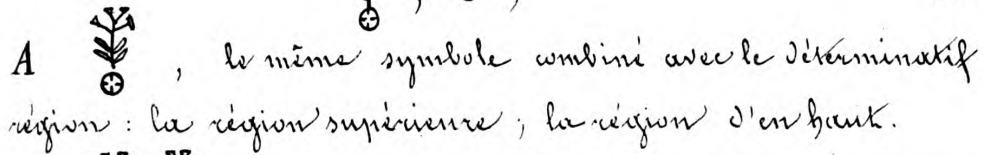 A 𓇗, le même symbole combiné avec le déterminatif
région : la région supérieure ; la région d'en haut.